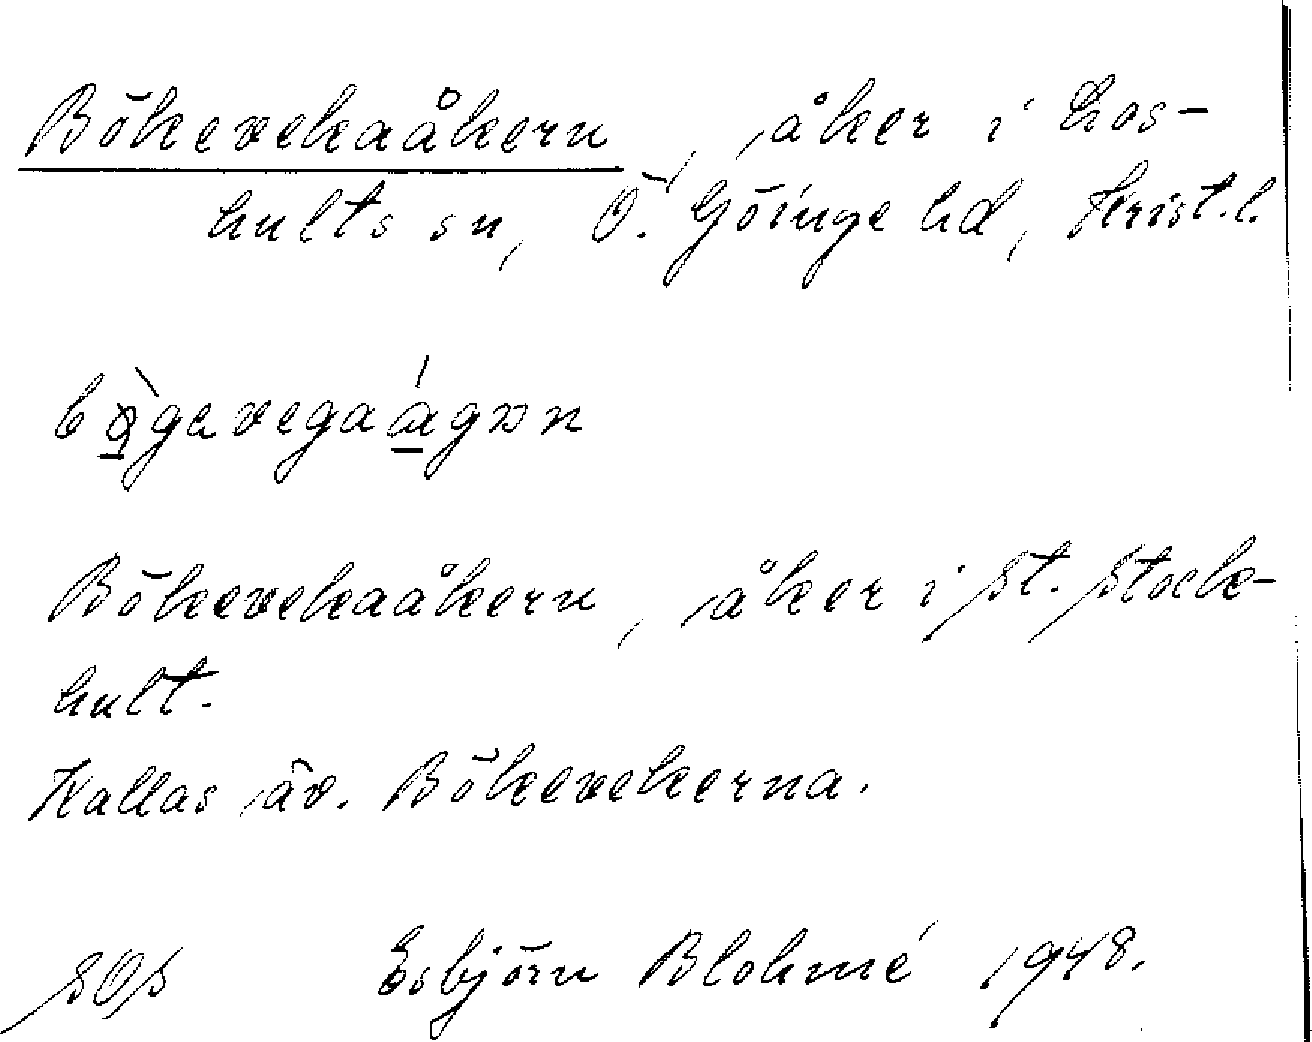 Bökevekaåkern, åker i Los-
hults sn, Ö. Göinge hd, Krist.l.
bø̀gavegaágɔn
Bökevekaåkern, åker i St. Stock-
hult.
Kallas äv. Bökevekerna.
SOS Esbjörn Blohmé 1948.